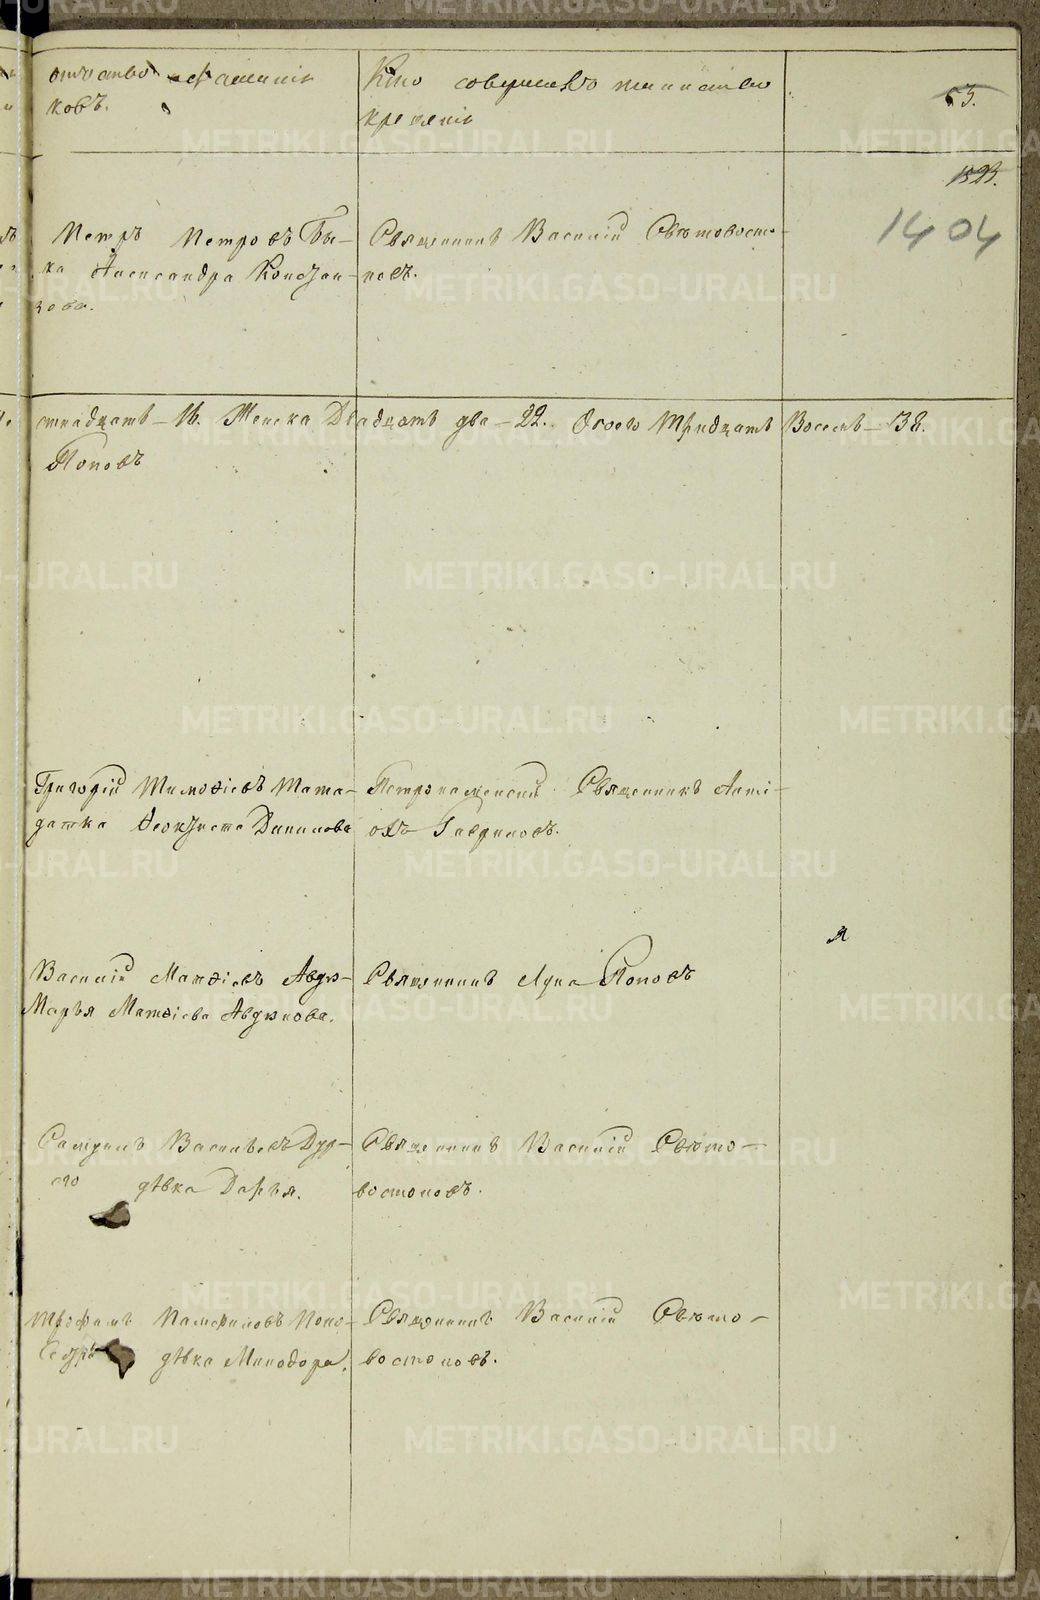 отчество и фамилія
ковъ.
Кто совершалъ таинство
крещенія
53.
1404
Петръ Петровъ Бы-
ка Александра Констан-
зова.
Священникъ Василій Свѣтовосто-
ковъ.
стнадцать - 16. Женска Двадцать два - 22. Обоего Тридцать Восемь - 38.
Поповъ
Григорій Тимофіевъ Мата-
датка Феоктиста Данилова
Петрокаменскій Священникъ Анті-
охъ Гавриловъ.
Василій Матфіевъ Авдю-
Марья Матфіева Авдюкова.
Священникъ Лука Поповъ
Васильевъ
дѣвка Дарья.
Священникъ Василій Свѣто-
востоковъ.
Трофимъ Памфиловъ Попо-
дѣвка Минодора.
Священникъ Василій Свѣто-
востоковъ.
METRIKI.GASO-URAL.RU